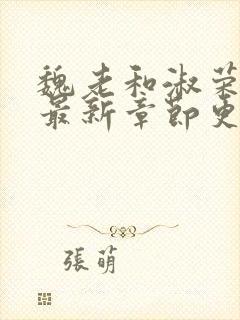 魏老和淑荣
最新章節更
張萌